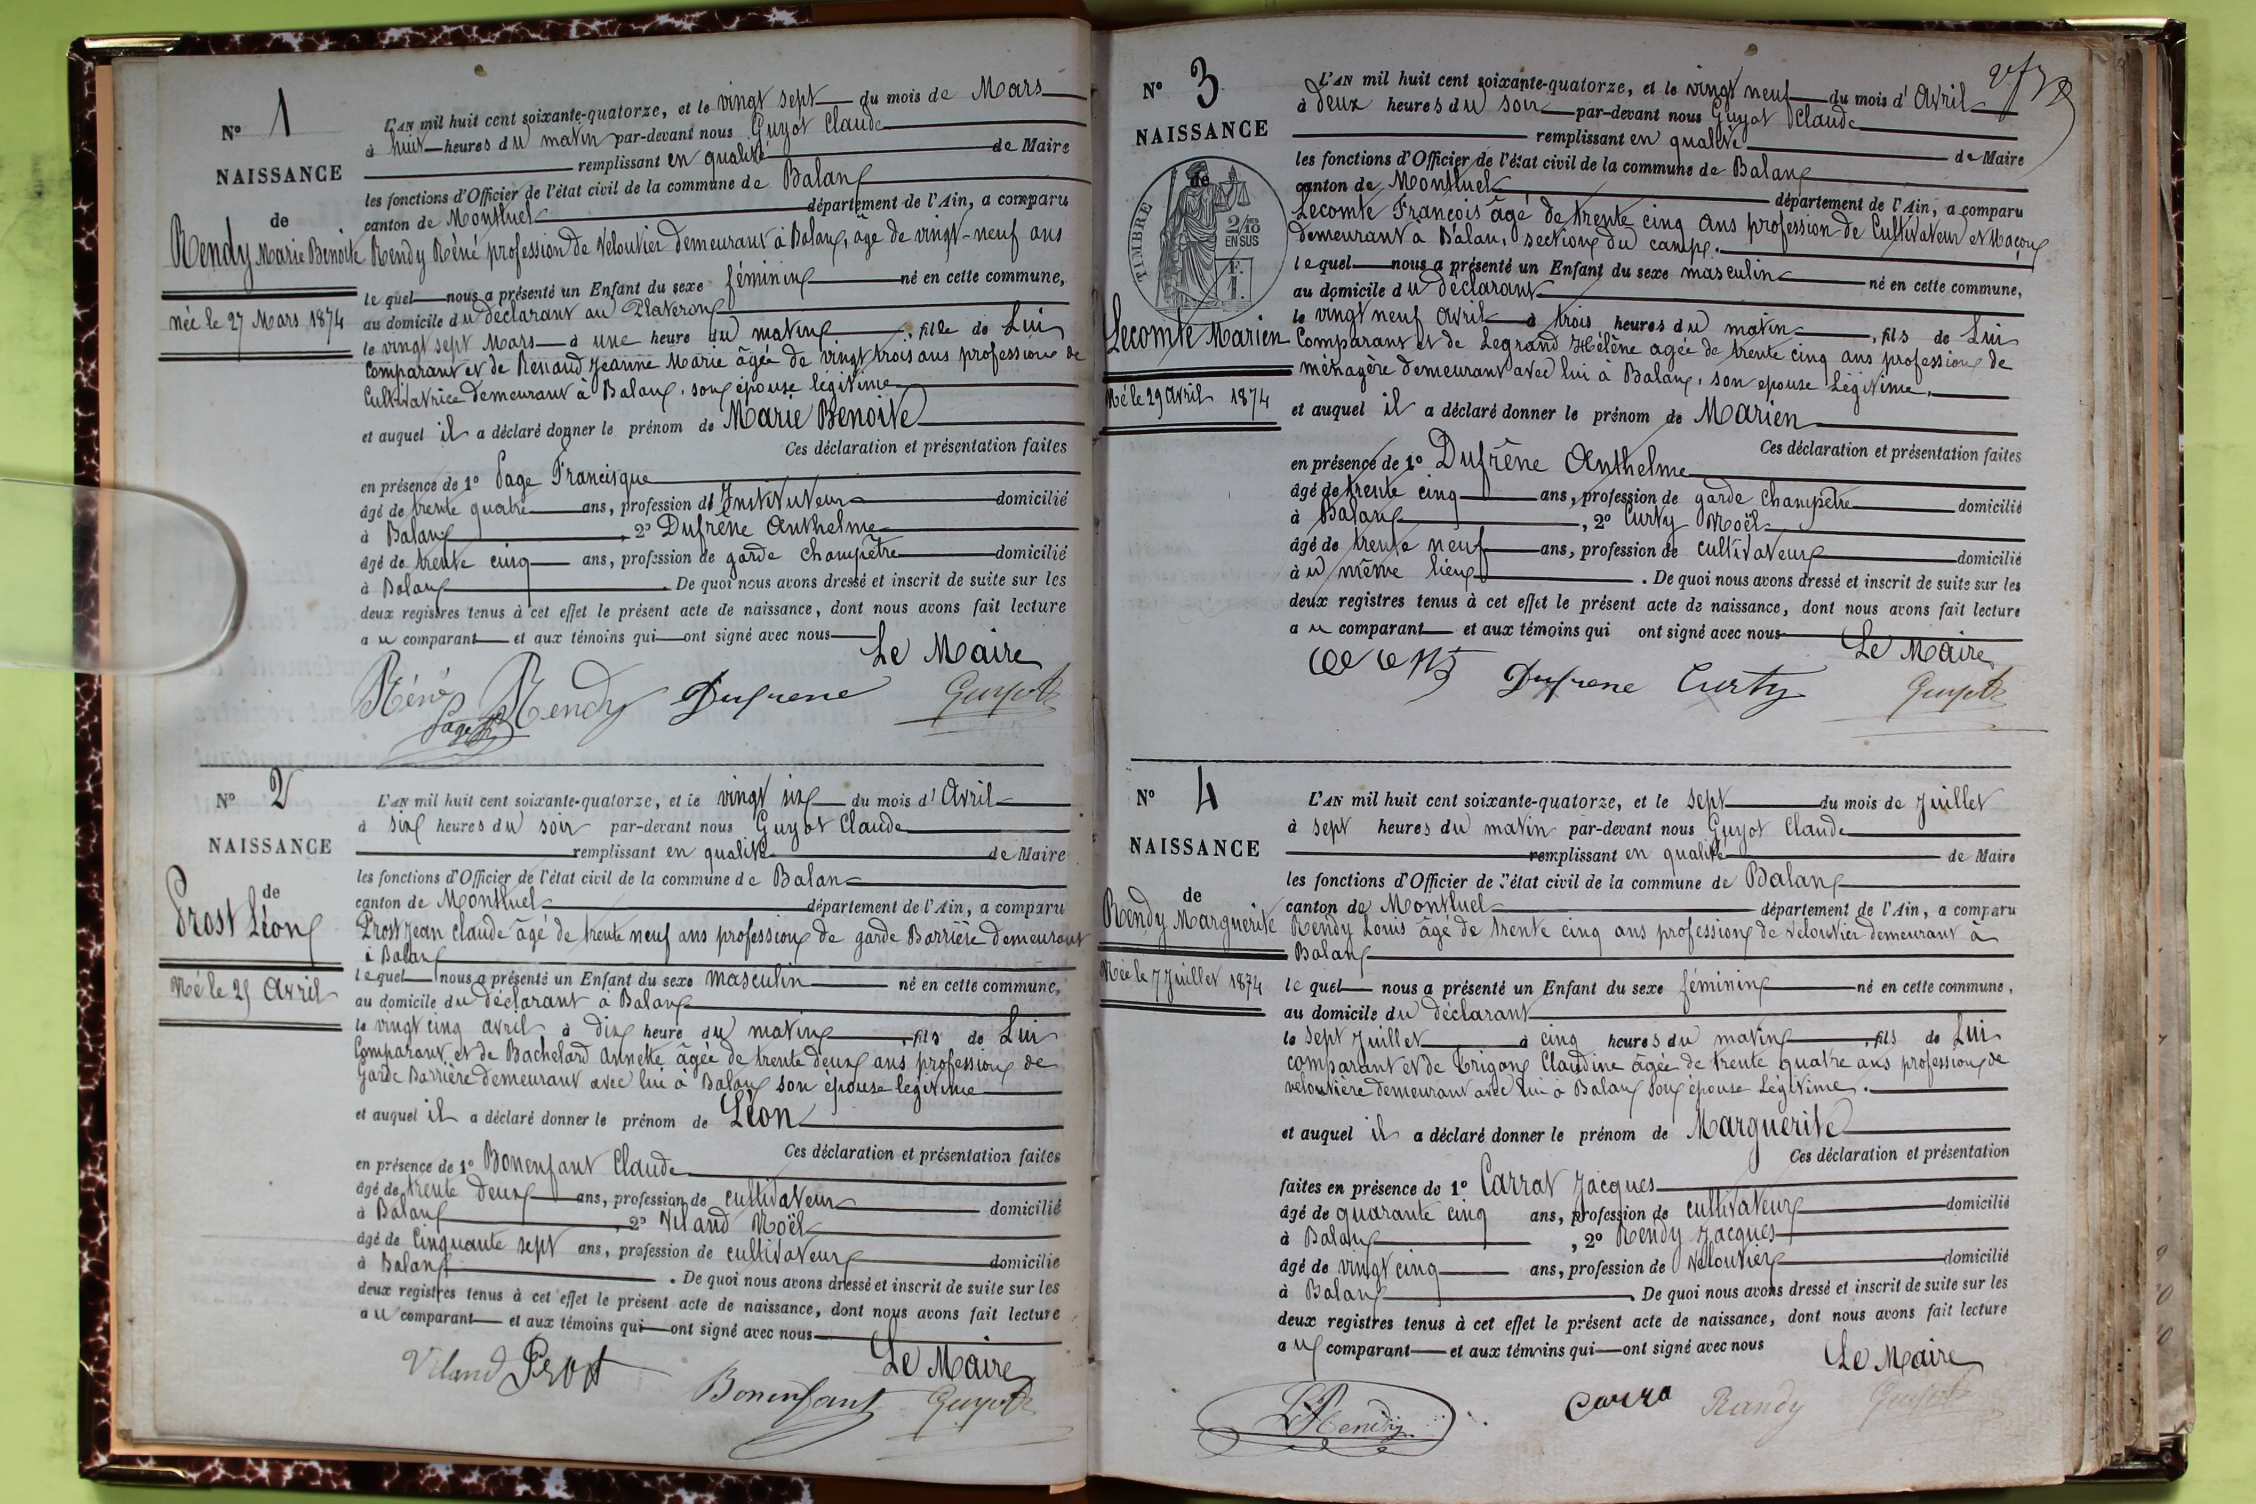 N° 1
NAISSANCE
de
Rendy Marie Benoite
née le 27 Mars 1874
L'AN mil huit cent soixante-quatorze, et le vingt sept du mois de Mars
à huit heures du matin par-devant nous Guyot Claude
remplissant en qualité de Maire
les fonctions d'Officier de l'état civil de la commune de Balan
canton de Montluel département de l'Ain, a comparu
Rendy Réné profession de Veloutier demeurant à Balan, âgé de vingt-neuf ans
le quel nous a présenté un Enfant du sexe féminin né en cette commune,
au domicile du déclarant au Plateron
le vingt sept Mars à une heure du matin, fille de Lui
Comparant et de Renaud Jeanne Marie âgée de vingt trois ans profession de
Cultivatrice demeurant à Balan, son épouse légitime
et auquel il a déclaré donner le prénom de Marie Benoite
Ces déclaration et présentation faites
en présence de 1° Page Francisque
âgé de trente quatre ans, profession d'Instituteur domicilié
à Balan, 2° Dufrêne Anthelme
âgé de trente cinq ans, profession de garde champêtre domicilié
à Balan. De quoi nous avons dressé et inscrit de suite sur les
deux registres tenus à cet effet le présent acte de naissance, dont nous avons fait lecture
au comparant et aux témoins qui ont signé avec nous
Le Maire
Réné Rendy Dufrene Guyot
Page
N° 2
NAISSANCE
de
Prost Léon
Né le 25 Avril
L'AN mil huit cent soixante-quatorze, et le vingt six du mois d'Avril
à six heures du soir par-devant nous Guyot Claude
remplissant en qualité de Maire
les fonctions d'Officier de l'état civil de la commune de Balan
canton de Montluel département de l'Ain, a comparu
Prost Jean Claude âgé de trente neuf ans profession de garde Barrière demeurant
à Balan
le quel nous a présenté un Enfant du sexe masculin né en cette commune,
au domicile du déclarant à Balan
le vingt cinq avril à dix heure du matin, fils de Lui
Comparant et de Bachelard Annette âgée de trente deux ans profession de
Garde Barrière demeurant avec lui à Balan son épouse légitime
et auquel il a déclaré donner le prénom de Léon
Ces déclaration et présentation faites
en présence de 1° Bonenfant Claude
âgé de trente deux ans, profession de cultivateur domicilié
à Balan, 2° Viland Noël
âgé de Cinquante sept ans, profession de cultivateur domicilié
à Balan. De quoi nous avons dressé et inscrit de suite sur les
deux registres tenus à cet effet le présent acte de naissance, dont nous avons fait lecture
au comparant et aux témoins qui ont signé avec nous
Le Maire
Viland Prost Bonenfant Guyot
N° 3
NAISSANCE
de
TIMBRE
2/10
EN SUS
Lecomte Marien
Né le 29 avril 1874
L'AN mil huit cent soixante-quatorze, et le vingt neuf du mois d'Avril
à deux heures du soir par-devant nous Guyot Claude
remplissant en qualité de Maire
les fonctions d'Officier de l'état civil de la commune de Balan
canton de Montluel département de l'Ain, a comparu
Lecomte François âgé de trente cinq ans profession de Cultivateur et Maçon
demeurant à Balan, section du camp.
le quel nous a présenté un Enfant du sexe masculin né en cette commune,
au domicile du déclarant
le vingt neuf Avril à trois heures du matin, fils de Lui
Comparant et de Legrand Hélène agée de trente cinq ans profession de
ménagère demeurant avec lui à Balan, son epouse Légitime.
et auquel il a déclaré donner le prénom de Marien
Ces déclaration et présentation faites
en présence de 1° Dufrêne Anthelme
âgé de trente cinq ans, profession de garde champêtre domicilié
à Balan, 2° Curty Noël
âgé de trente neuf ans, profession de cultivateur domicilié
au même lieu. De quoi nous avons dressé et inscrit de suite sur les
deux registres tenus à cet effet le présent acte de naissance, dont nous avons fait lecture
au comparant et aux témoins qui ont signé avec nous
Le Maire
Dufrene Curty Guyot
N° 4
NAISSANCE
de
Rendy Marguerite
Née le 7 Juillet 1874
L'AN mil huit cent soixante-quatorze, et le sept du mois de Juillet
à sept heures du matin par-devant nous Guyot Claude
remplissant en qualité de Maire
les fonctions d'Officier de l'état civil de la commune de Balan
canton de Montluel département de l'Ain, a comparu
Rendy Louis âgé de trente cinq ans profession de Veloutier demeurant à
Balan
le quel nous a présenté un Enfant du sexe féminin né en cette commune,
au domicile du déclarant
le sept Juillet à cinq heures du matin, fils de Lui
comparant et de Trigon Claudine âgée de trente quatre ans profession de
veloutière demeurant avec lui à Balan son épouse Légitime.
et auquel il a déclaré donner le prénom de Marguerite
Ces déclaration et présentation
faites en présence de 1° Carrat Jacques
âgé de quarante cinq ans, profession de cultivateur domicilié
à Balan, 2° Rendy Jacques
âgé de vingt cinq ans, profession de Veloutier domicilié
à Balan. De quoi nous avons dressé et inscrit de suite sur les
deux registres tenus à cet effet le présent acte de naissance, dont nous avons fait lecture
au comparant et aux témoins qui ont signé avec nous
Le Maire
L Rendy Carra Randy Guyot